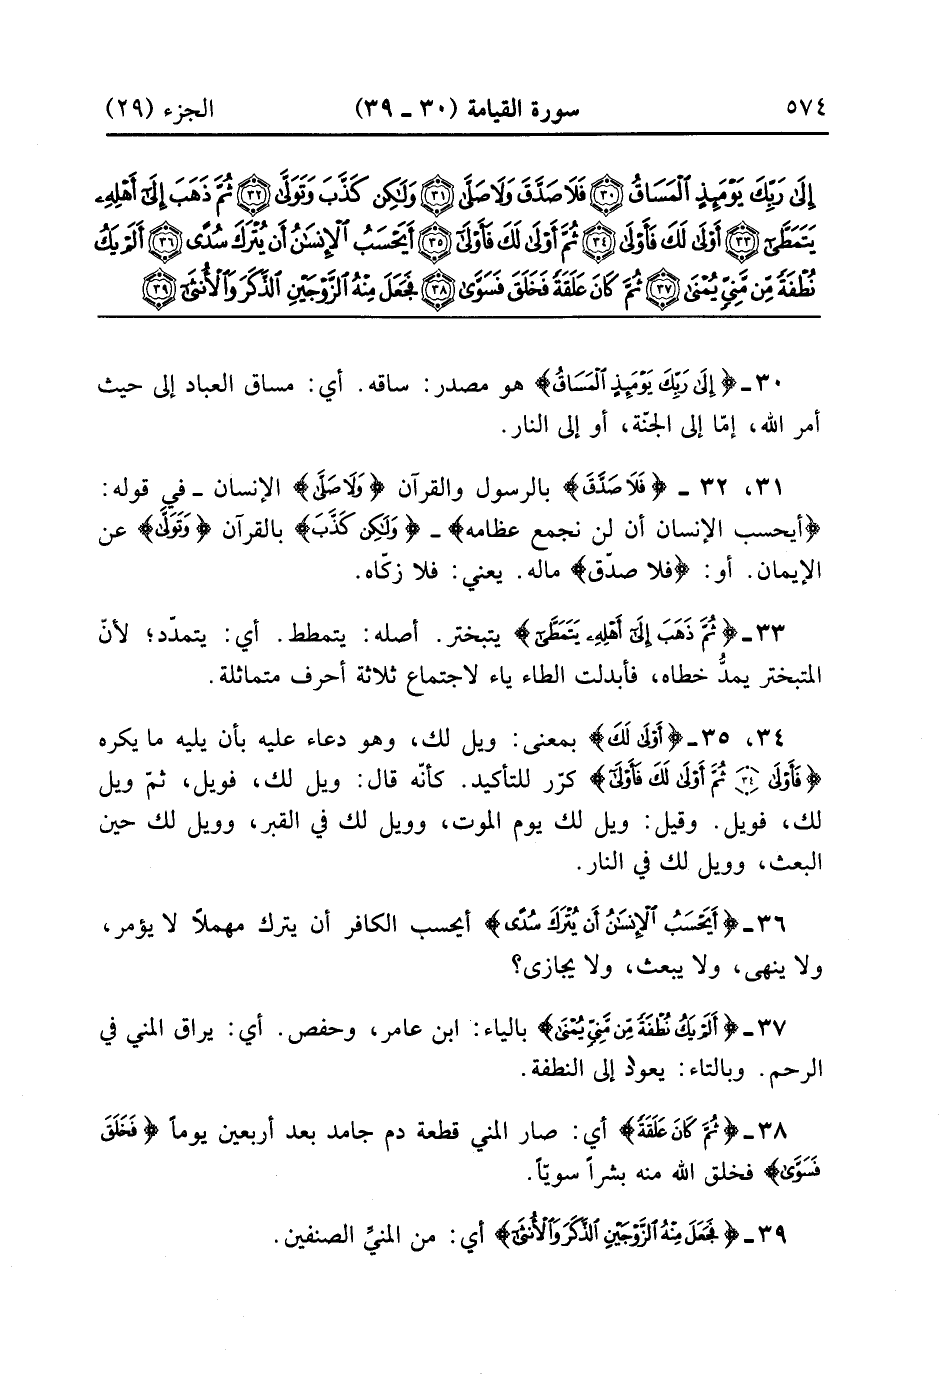 ٥٧٤ سورة القيامة (٣٠ ـ ٣٩) الجزء (٢٩)
إِلَىٰ رَبِّكَ يَوْمَئِذٍ ٱلْمَسَاقُ ﴿٣٠﴾ فَلَا صَدَّقَ وَلَا صَلَّىٰ ﴿٣١﴾ وَلَٰكِن كَذَّبَ وَتَوَلَّىٰ ﴿٣٢﴾ ثُمَّ ذَهَبَ إِلَىٰٓ أَهْلِهِۦ
يَتَمَطَّىٰٓ ﴿٣٣﴾ أَوْلَىٰ لَكَ فَأَوْلَىٰ ﴿٣٤﴾ ثُمَّ أَوْلَىٰ لَكَ فَأَوْلَىٰٓ ﴿٣٥﴾ أَيَحْسَبُ ٱلْإِنسَٰنُ أَن يُتْرَكَ سُدًى ﴿٣٦﴾ أَلَمْ يَكُ
نُطْفَةً مِّن مَّنِىٍّ يُمْنَىٰ ﴿٣٧﴾ ثُمَّ كَانَ عَلَقَةً فَخَلَقَ فَسَوَّىٰ ﴿٣٨﴾ فَجَعَلَ مِنْهُ ٱلزَّوْجَيْنِ ٱلذَّكَرَ وَٱلْأُنثَىٰٓ ﴿٣٩﴾
٣٠ـ ﴿إِلَىٰ رَبِّكَ يَوْمَئِذٍ ٱلْمَسَاقُ﴾ هو مصدر: ساقه. أي: مساق العباد إلى حيث
أمر الله، إمّا إلى الجنّة، أو إلى النار.
٣١، ٣٢ ـ ﴿فَلَا صَدَّقَ﴾ بالرسول والقرآن ﴿وَلَا صَلَّىٰ﴾ الإنسان ـ في قوله:
﴿أيحسب الإنسان أن لن نجمع عظامه﴾ ـ ﴿وَلَٰكِن كَذَّبَ﴾ بالقرآن ﴿وَتَوَلَّىٰ﴾ عن
الإيمان. أو: ﴿فلا صدّق﴾ ماله. يعني: فلا زكّاه.
٣٣ـ ﴿ثُمَّ ذَهَبَ إِلَىٰٓ أَهْلِهِۦ يَتَمَطَّىٰٓ﴾ يتبختر. أصله: يتمطط. أي: يتمدّد؛ لأنّ
المتبختر يمدُّ خطاه، فأبدلت الطاء ياء لاجتماع ثلاثة أحرف متماثلة.
٣٤، ٣٥ـ ﴿أَوْلَىٰ لَكَ﴾ بمعنى: ويل لك، وهو دعاء عليه بأن يليه ما يكره
﴿فَأَوْلَىٰ ﴿٣٤﴾ ثُمَّ أَوْلَىٰ لَكَ فَأَوْلَىٰٓ﴾ كرّر للتأكيد. كأنّه قال: ويل لك، فويل، ثمّ ويل
لك، فويل. وقيل: ويل لك يوم الموت، وويل لك في القبر، وويل لك حين
البعث، وويل لك في النار.
٣٦ـ ﴿أَيَحْسَبُ ٱلْإِنسَٰنُ أَن يُتْرَكَ سُدًى﴾ أيحسب الكافر أن يترك مهملاً لا يؤمر،
ولا ينهى، ولا يبعث، ولا يجازى؟
٣٧ـ ﴿أَلَمْ يَكُ نُطْفَةً مِّن مَّنِىٍّ يُمْنَىٰ﴾ بالياء: ابن عامر، وحفص. أي: يراق المني في
الرحم. وبالتاء: يعود إلى النطفة.
٣٨ـ ﴿ثُمَّ كَانَ عَلَقَةً﴾ أي: صار المني قطعة دم جامد بعد أربعين يوماً ﴿فَخَلَقَ
فَسَوَّىٰ﴾ فخلق الله منه بشراً سويّاً.
٣٩ـ ﴿فَجَعَلَ مِنْهُ ٱلزَّوْجَيْنِ ٱلذَّكَرَ وَٱلْأُنثَىٰٓ﴾ أي: من المنيِّ الصنفين.